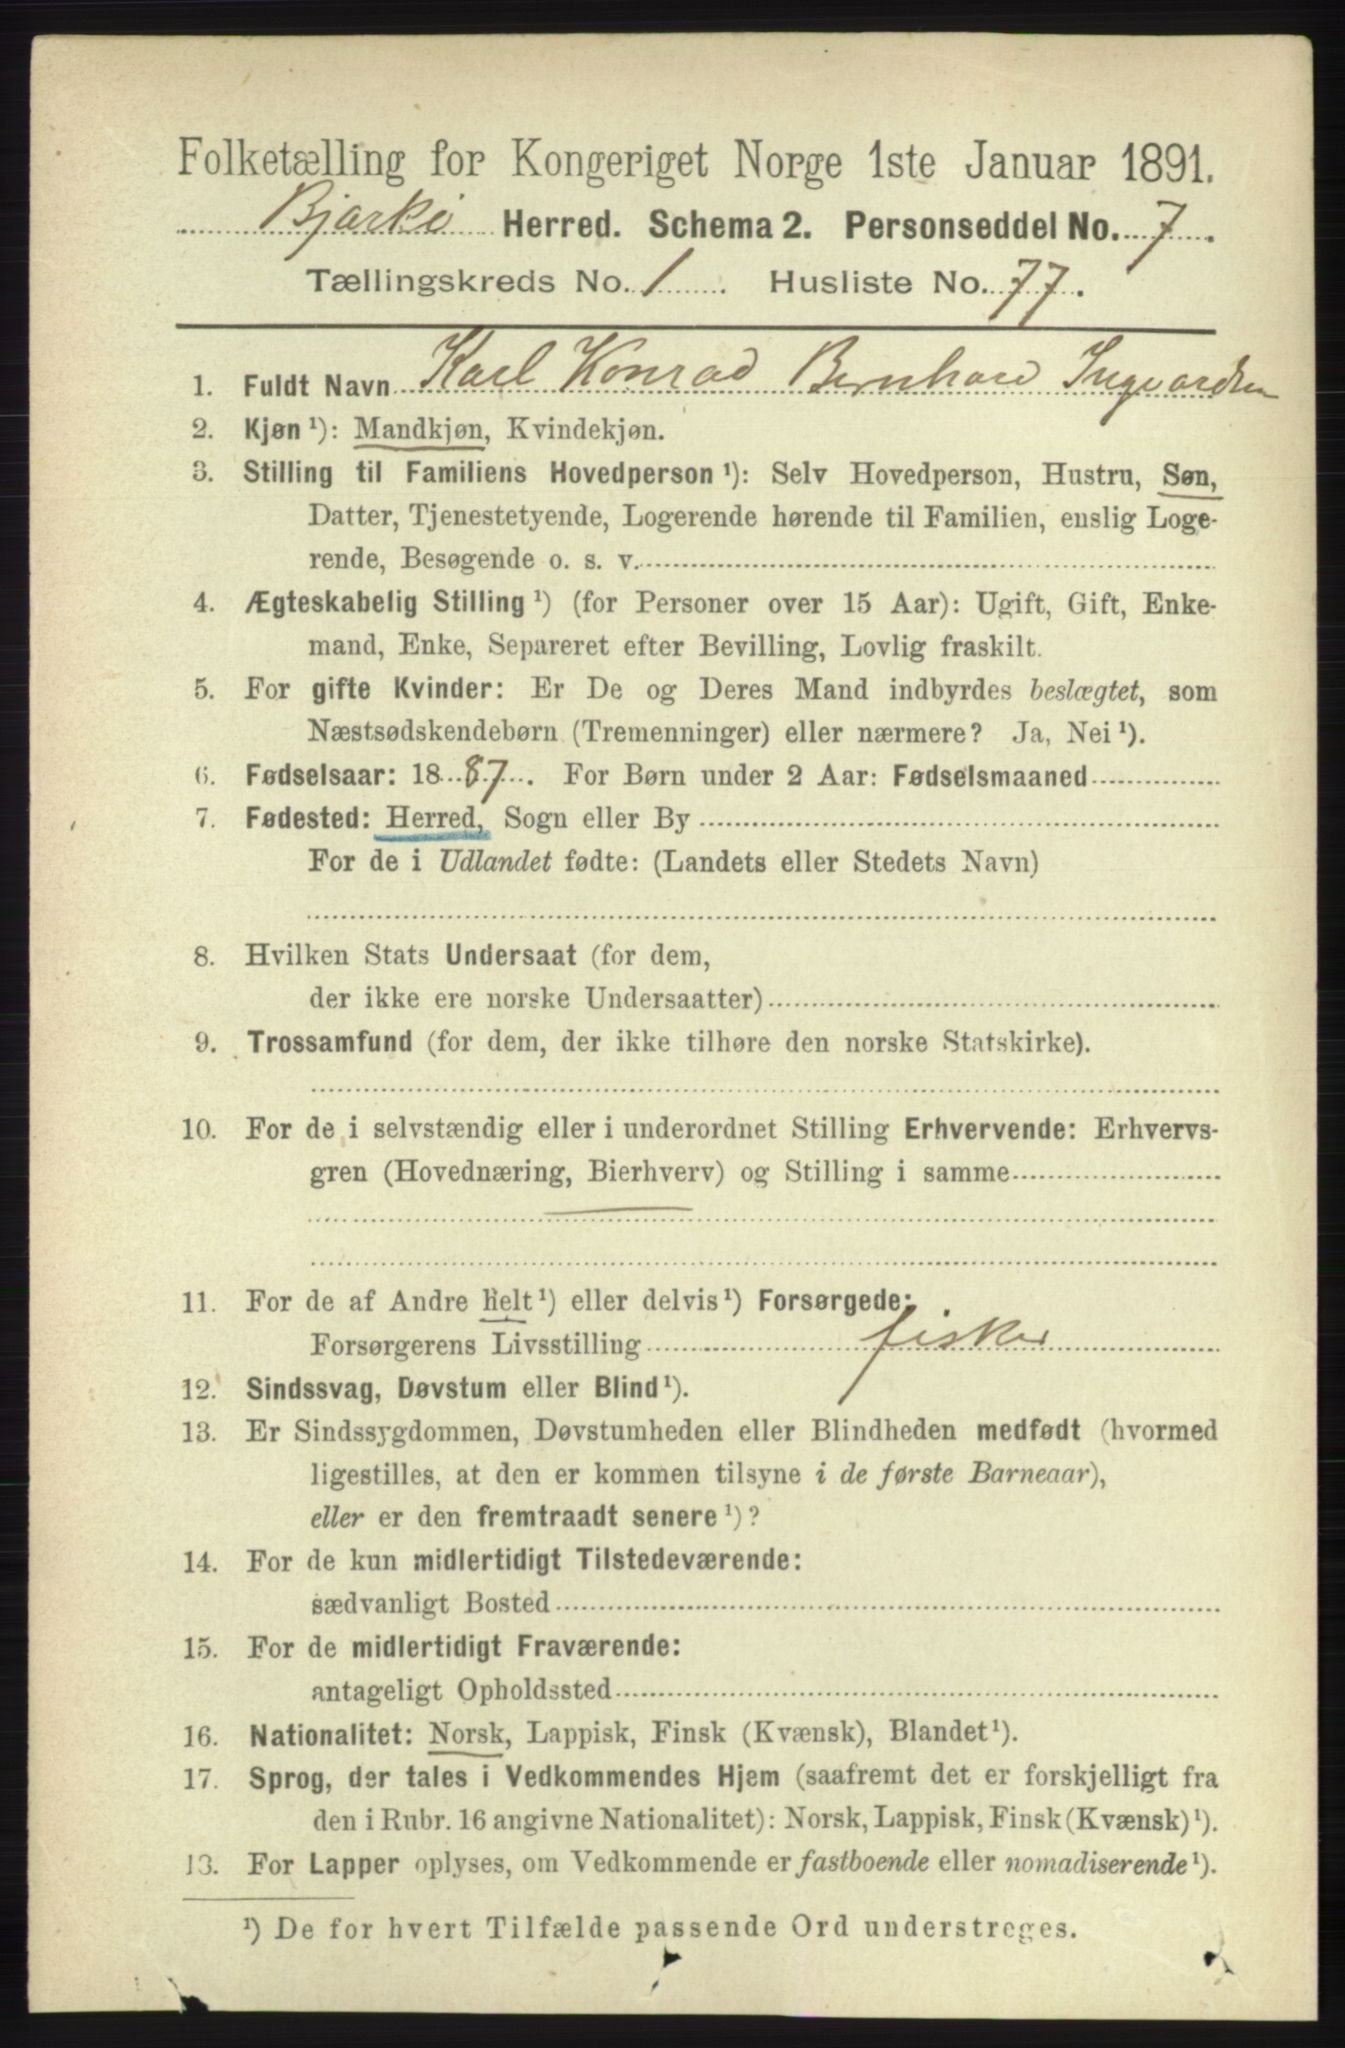 Folketælling for Kongeriget Norge 1ste Januar 1891.
Bjarkö Herred. Schema 2. Personseddel No. 7.
Tællingskreds No. 1. Husliste No. 77.
1. Fuldt Navn Karl Konrad Bernhard Ingvardsen
2. Kjøn ¹): Mandkjøn, Kvindekjøn.
3. Stilling til Familiens Hovedperson ¹): Selv Hovedperson, Hustru, Søn,
Datter, Tjenestetyende, Logerende hørende til Familien, enslig Loge-
rende, Besøgende o. s. v.
4. Ægteskabelig Stilling ¹) (for Personer over 15 Aar): Ugift, Gift, Enke-
mand, Enke, Separeret efter Bevilling, Lovlig fraskilt.
5. For gifte Kvinder: Er De og Deres Mand indbyrdes beslægtet, som
Næstsødskendebørn (Tremenninger) eller nærmere? Ja, Nei ¹).
6. Fødselsaar: 1887. For Børn under 2 Aar: Fødselsmaaned
7. Fødested: Herred, Sogn eller By
For de i Udlandet fødte: (Landets eller Stedets Navn)
8. Hvilken Stats Undersaat (for dem,
der ikke ere norske Undersaatter)
9. Trossamfund (for dem, der ikke tilhøre den norske Statskirke).
10. For de i selvstændig eller i underordnet Stilling Erhvervende: Erhvervs-
gren (Hovednæring, Bierhverv) og Stilling i samme
11. For de af Andre helt ¹) eller delvis ¹) Forsørgede:
Forsørgerens Livsstilling fisker
12. Sindssvag, Døvstum eller Blind ¹).
13. Er Sindssygdommen, Døvstumheden eller Blindheden medfødt (hvormed
ligestilles, at den er kommen tilsyne i de første Barneaar),
eller er den fremtraadt senere ¹)?
14. For de kun midlertidigt Tilstedeværende:
sædvanligt Bosted
15. For de midlertidigt Fraværende:
antageligt Opholdssted
16. Nationalitet: Norsk, Lappisk, Finsk (Kvænsk), Blandet ¹).
17. Sprog, der tales i Vedkommendes Hjem (saafremt det er forskjelligt fra
den i Rubr. 16 angivne Nationalitet): Norsk, Lappisk, Finsk (Kvænsk) ¹).
18. For Lapper oplyses, om Vedkommende er fastboende eller nomadiserende ¹).
¹) De for hvert Tilfælde passende Ord understreges.